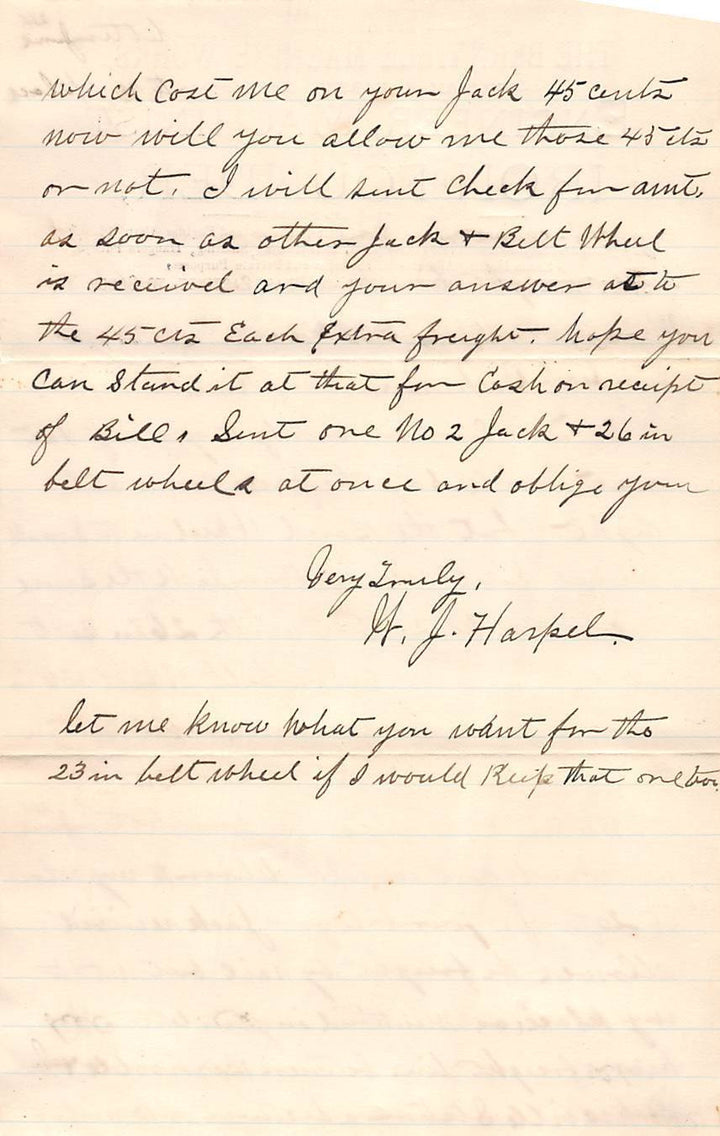 which cost me on your Jack 45 cents
now will you allow me those 45 cts
or not. I will sent check for amt.
as soon as other Jack & Belt Wheel
is received and your answer as to
the 45 cts Each Extra freight. hope you
can stand it at that for Cash on receipt
of Bill, Sent one No 2 Jack & 26 in
belt wheels at once and oblige your
Very Truly,
W. J. Harpel.
let me know what you want for the
23 in belt wheel if I would Keep that one too.